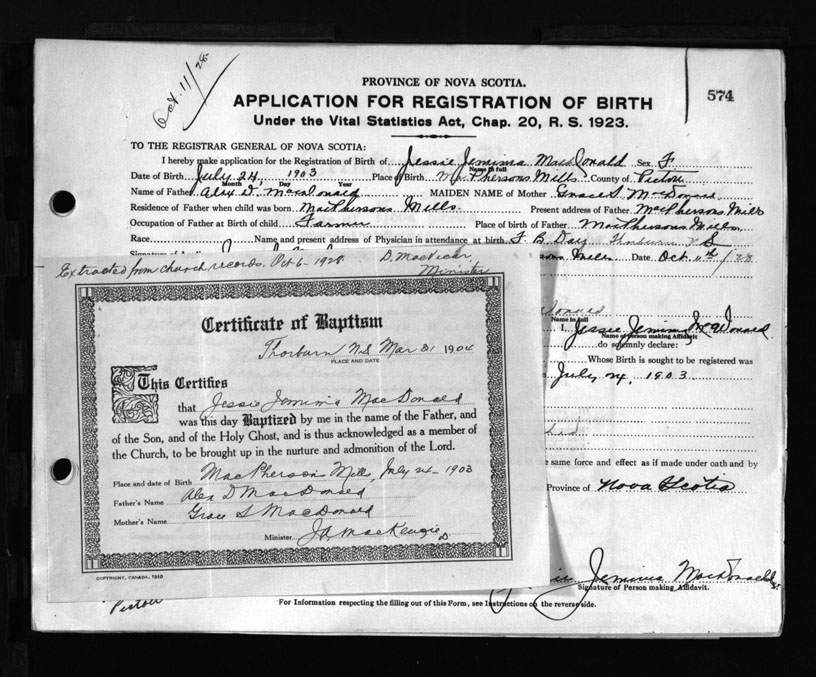 Oct. 11/28.
PROVINCE OF NOVA SCOTIA.
574
APPLICATION FOR REGISTRATION OF BIRTH
Under the Vital Statistics Act, Chap. 20, R. S. 1923.
TO THE REGISTRAR GENERAL OF NOVA SCOTIA:
I hereby make application for the Registration of Birth of Jessie Jemima MacDonald Sex F
Name in full
Date of Birth July 24, 1903 Place of Birth MacPhersons Mills County of Pictou
Month Day Year
Name of Father Alex D. MacDonald MAIDEN NAME of Mother Grace S. MacDonald
Residence of Father when child was born MacPhersons Mills Present address of Father MacPhersons Mills
Occupation of Father at Birth of child Farmer Place of birth of Father MacPhersons Mills
Race Name and present address of Physician in attendance at birth F. B. Day Thorburn N S
Mills Date Oct 11th / 28
Extracted from church records, Oct 6 - 1928 D. MacVicar,
Minister
Certificate of Baptism
Thorburn N.S Mar 31 1904
PLACE AND DATE
This Certifies
that Jessie Jemima MacDonald
was this day Baptized by me in the name of the Father, and
of the Son, and of the Holy Ghost, and is thus acknowledged as a member of
the Church, to be brought up in the nurture and admonition of the Lord.
Place and date of Birth MacPherson Mills, July 24 - 1903
Father's Name Alex D MacDonald
Mother's Name Grace S MacDonald
Minister J A MacKenzie
COPYRIGHT, CANADA, 1910
Name in full
I, Jessie Jemima McDonald
Name of person making Affidavit
do solemnly declare:
Whose Birth is sought to be registered was
July 24, 1903.
same force and effect as if made under oath and by
Province of Nova Scotia
Jemima MacDonald
Signature of Person making Affidavit.
Pictou
For Information respecting the filling out of this Form, see Instructions on the reverse side.